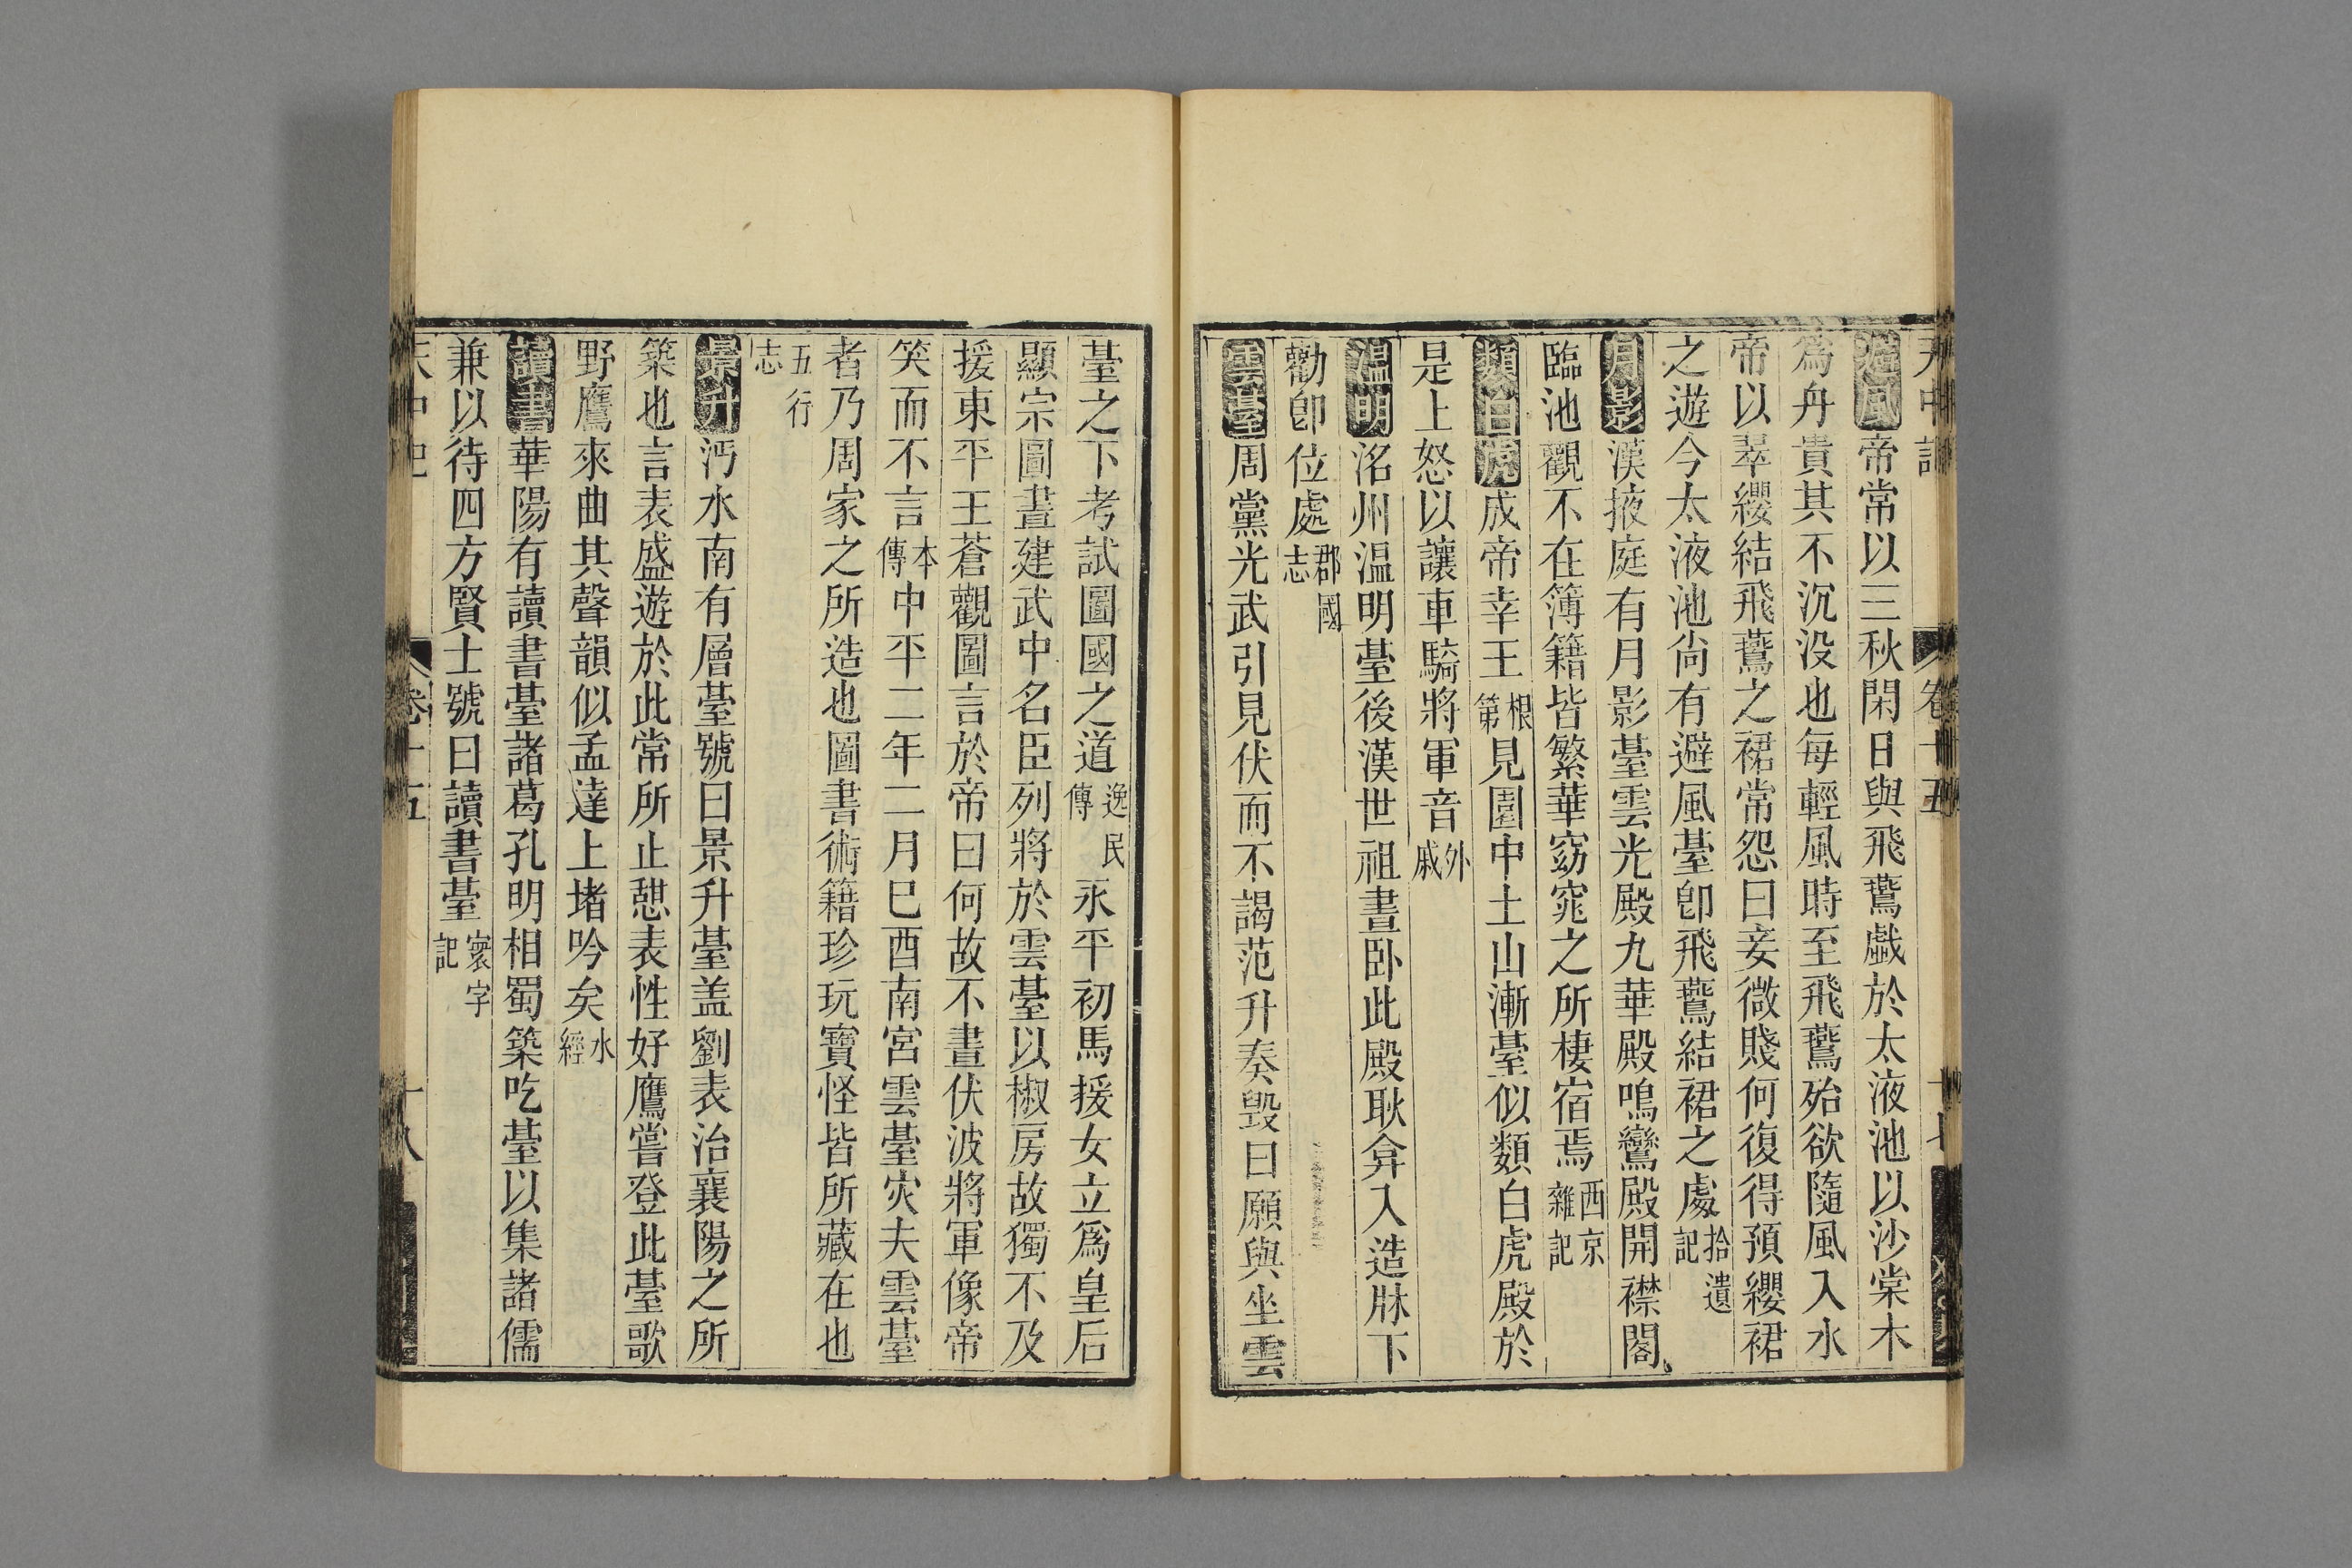 天中記 卷十五 十七
避風帝常以三秋閑日與飛鷰戲於太液池以沙棠木
爲舟貴其不沉没也每輕風時至飛鷰殆欲隨風入水
帝以翠纓結飛鷰之裾常怨曰妾微賤何復得預纓裾
之遊今太液池尙有避風臺卽飛鷰結裾之處拾遺記
月影漢掖庭有月影臺雲光殿九華殿鳴鸞殿開襟閣
臨池觀不在簿籍皆繁華窈窕之所棲宿焉西京雜記
類白虎成帝幸王根第見園中土山漸臺似類白虎殿於
是上怒以讓車騎將軍音外戚
温明洺州温明臺後漢世祖晝卧此殿耿弇入造牀下
勸卽位處郡國志
雲臺周黨光武引見伏而不謁范升奏毀曰願與坐雲
臺之下考試圖國之道逸民傳永平初馬援女立爲皇后
顯宗圖畫建武中名臣列將於雲臺以椒房故獨不及
援東平王蒼觀圖言於帝曰何故不畫伏波將軍像帝
笑而不言本傳中平二年二月巳酉南宮雲臺灾夫雲臺
者乃周家之所造也圖書術籍珍玩寶怪皆所藏在也
五行志
景升沔水南有層臺號曰景升臺盖劉表治襄陽之所
築也言表盛遊於此常所止憇表性好鷹嘗登此臺歌
野鷹來曲其聲韻似孟達上堵吟矣水經
讀書華陽有讀書臺諸葛孔明相蜀築吃臺以集諸儒
兼以待四方賢士號曰讀書臺寰字記
天中記 卷十五 十八